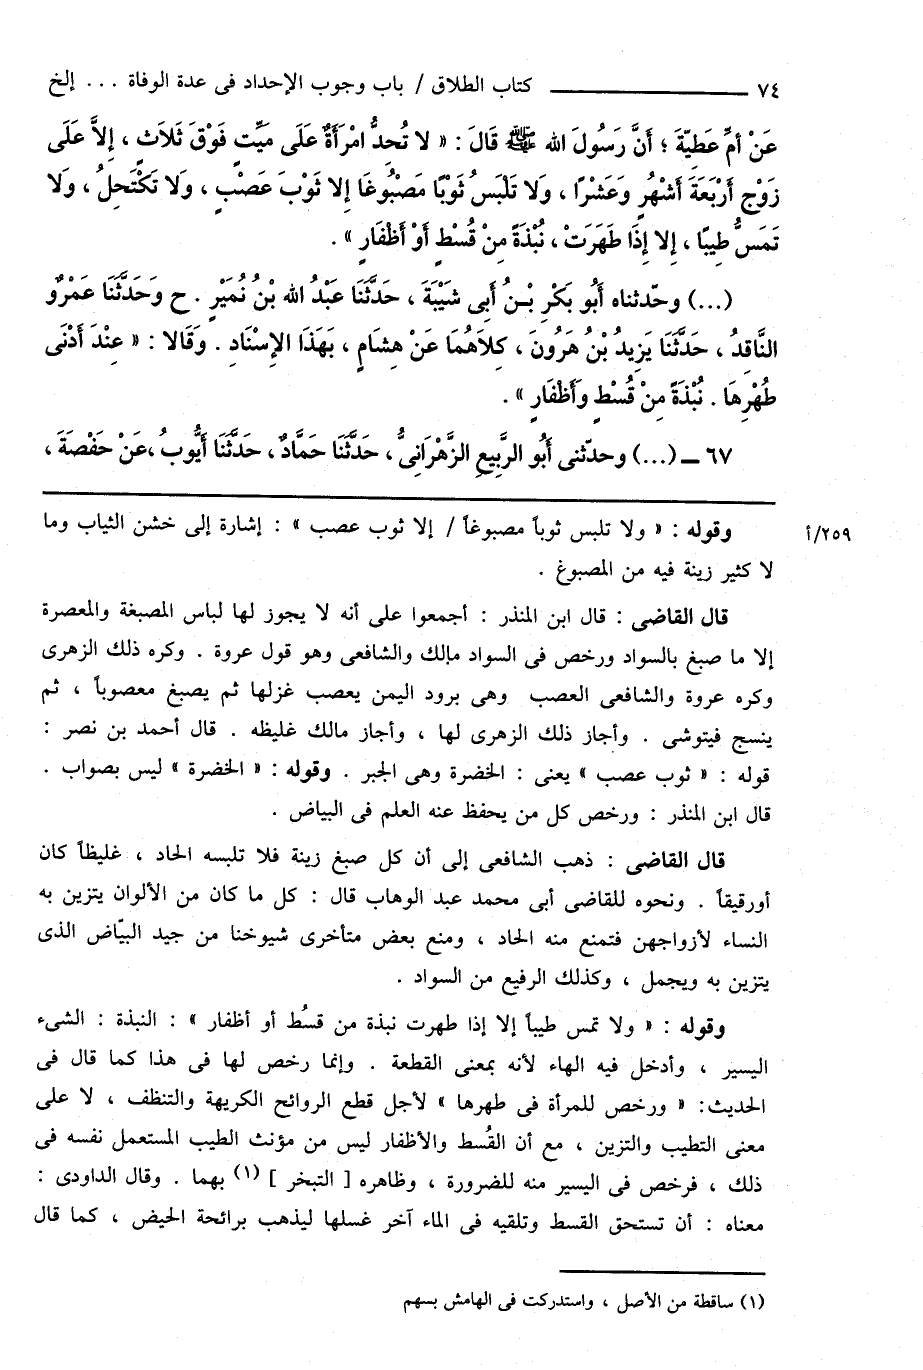 ٧٤ ـــــــــــــــــ كتاب الطلاق / باب وجوب الإحداد فى عدة الوفاة ... إلخ
عَنْ أمِّ عَطِيَّةَ ؛ أنَّ رَسُولَ الله ﷺ قَالَ : « لا تُحدُّ امْرَأَةٌ عَلَى مَيِّتٍ فَوْقَ ثَلاثٍ ، إلاَّ عَلَى
زَوْجٍ أَرْبَعَةَ أَشْهُرٍ وَعَشْرًا ، وَلا تَلْبَسُ ثَوْبًا مَصْبُوغًا إلا ثَوْبَ عَصْبٍ ، وَلا تَكْتَحلُ ، وَلا
تَمَسُّ طيبًا ، إلا إذَا طَهَرَتْ ، نُبْذَةً مِنْ قُسْطٍ أوْ أظْفَارٍ » .
(...) وحدّثناه أبُو بَكْرِ بْنُ أبِى شَيْبَةَ ، حَدَّثَنَا عَبْدُ الله بْنُ نُمَيْرٍ . ح وَحَدَّثَنَا عَمْرٌو
النَّاقدُ ، حَدَّثَنَا يَزِيدُ بْنُ هَرُونَ ، كلاَهُمَا عَنْ هِشَامٍ ، بَهَذَا الإسْنَادِ . وَقَالا : « عِنْدَ أدْنَى
طُهْرِهَا . نُبْذَةً مِنْ قُسْطٍ وَأَظْفَارٍ » .
٦٧ ـ (...) وحدّثنى أبُو الرَّبِيعِ الزَّهْرَانِىُّ ، حَدَّثَنَا حَمَّادٌ ، حَدَّثَنَا أيُّوبُ ،عَنْ حَفْصَةَ ،
وقوله : « ولا تلبس ثوباً مصبوغاً / إلا ثوب عصب » : إشارة إلى خشن الثياب وما
٢٥٩/أ
لا كثير زينة فيه من المصبوغ .
قال القاضى : قال ابن المنذر : أجمعوا على أنه لا يجوز لها لباس المصبغة والمعصرة
إلا ما صبغ بالسواد ورخص فى السواد مالك والشافعى وهو قول عروة . وكره ذلك الزهرى
وكره عروة والشافعى العصب وهى برود اليمن يعصب غزلها ثم يصبغ معصوباً ، ثم
ينسج فيتوشى . وأجاز ذلك الزهرى لها ، وأجاز مالك غليظه . قال أحمد بن نصر :
قوله : « ثوب عصب » يعنى : الخضرة وهى الجبر . وقوله : « الخضرة » ليس بصواب .
قال ابن المنذر : ورخص كل من يحفظ عنه العلم فى البياض .
قال القاضى : ذهب الشافعى إلى أن كل صبغ زينة فلا تلبسه الحاد ، غليظاً كان
أورقيقاً . ونحوه للقاضى أبى محمد عبد الوهاب قال : كل ما كان من الألوان يتزين به
النساء لأزواجهن فتمنع منه الحاد ، ومنع بعض متأخرى شيوخنا من جيد البيّاض الذى
يتزين به ويجمل ، وكذلك الرفيع من السواد .
وقوله : « ولا تمس طيباً إلا إذا طهرت نبذة من قسُط أو أظفار » : النبذة : الشىء
اليسير ، وأدخل فيه الهاء لأنه بمعنى القطعة . وإنما رخص لها فى هذا كما قال فى
الحديث: « ورخص للمرأة فى طهرها » لأجل قطع الروائح الكريهة والتنظف ، لا على
معنى التطيب والتزين ، مع أن القُسط والأظفار ليس من مؤنث الطيب المستعمل نفسه فى
ذلك ، فرخص فى اليسير منه للضرورة ، وظاهره [ التبخر ] (١) بهما . وقال الداودى :
معناه : أن تستحق القسط وتلقيه فى الماء آخر غسلها ليذهب برائحة الحيض ، كما قال
(١) ساقطة من الأصل ، واستدركت فى الهامش بسهم